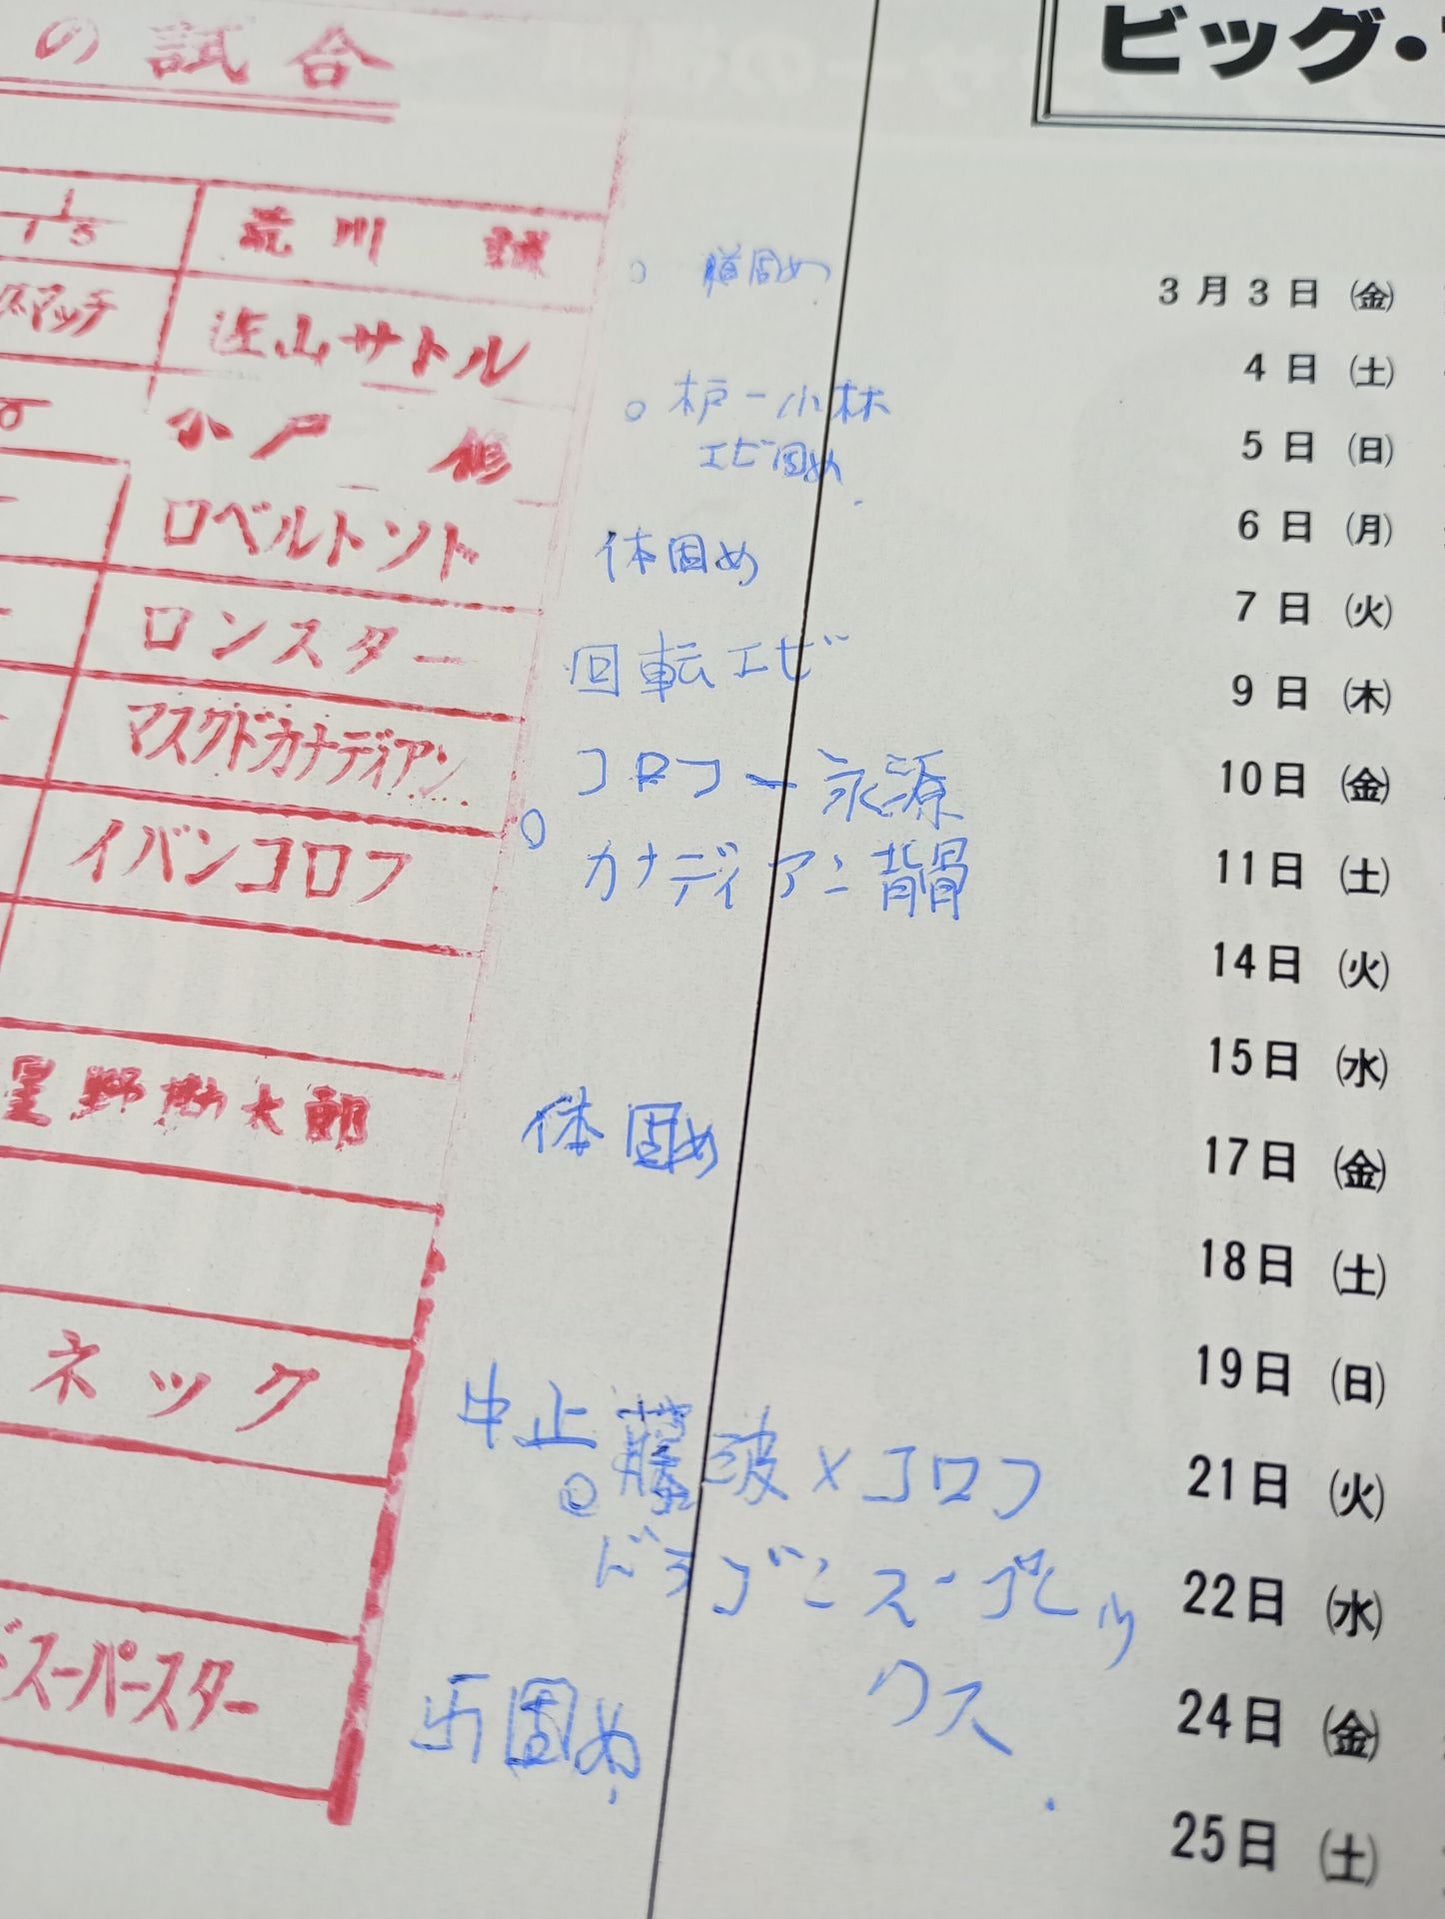 の試合
ビッグ・
1/15 荒川 誠
ズマッチ 佐山サトル
木戸 修
ロベルトソト
ロンスター
マスクドカナディアン
イバンコロフ
星野勘太郎
ネック
スーパースター
固め
木戸ー小林
エビ固め
体固め
回転エビ
コロフー永源
カナディアン背骨
体固め
中止 藤波×コロフ
ドラゴンスープレッ
クス
固め
3月3日㈮
4日㈯
5日㈰
6日㈪
7日㈫
9日㈭
10日㈮
11日㈯
14日㈫
15日㈬
17日㈮
18日㈯
19日㈰
21日㈫
22日㈬
24日㈮
25日㈯